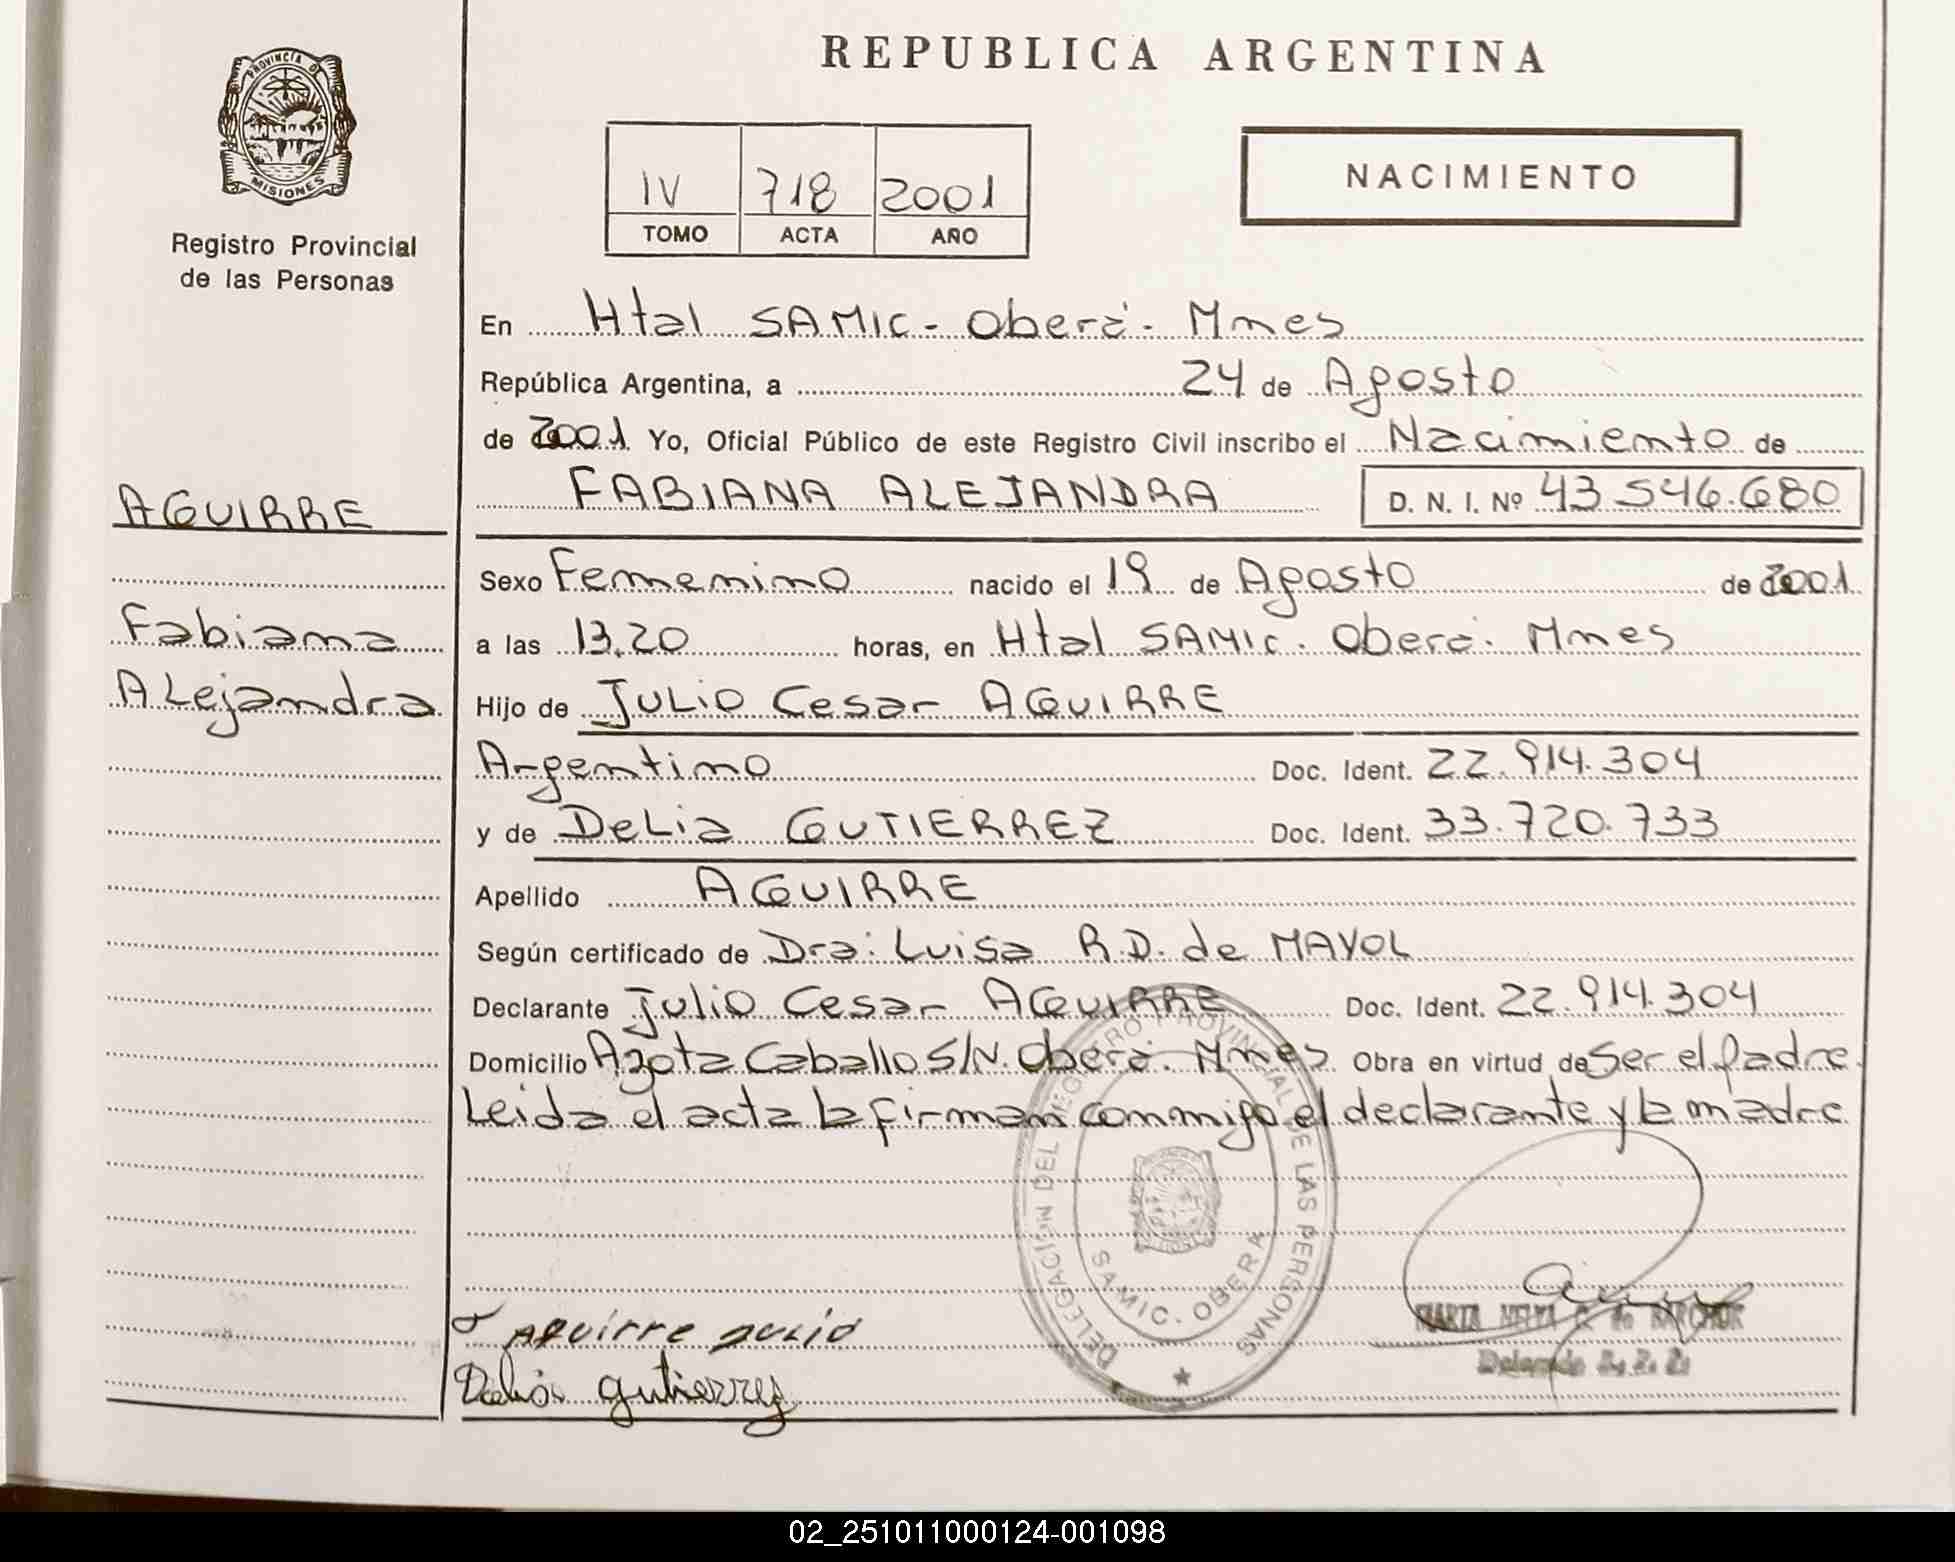 REPUBLICA ARGENTINA
PROVINCIA DE
MISIONES
Registro Provincial
de las Personas
IV 718 2001
TOMO ACTA AÑO
NACIMIENTO
En Htal SAMIC- Oberá- Mnes
República Argentina, a 24 de Agosto
de 2001 Yo, Oficial Público de este Registro Civil inscribo el Nacimiento de
FABIANA ALEJANDRA D. N. I. Nº 43.546.680
AGUIRRE
Fabiana
Alejandra
Sexo Femenino nacido el 19 de Agosto de 2001
a las 13,20 horas, en Htal SAMIC. Oberá. Mnes
Hijo de JULIO Cesar AGUIRRE
Argentino Doc. Ident. 22.914.304
y de DeLia GUTIERREZ Doc. Ident. 33.720.733
Apellido AGUIRRE
Según certificado de Dra: Luisa R.D. de MAYOL
Declarante Julio Cesar AGUIRRE Doc. Ident. 22.914.304
Domicilio Azota Caballo S/N. Oberá. Mnes Obra en virtud de Ser el Padre.
Leida el acta la firman conmigo el declarante y la madre
DELEGACION DEL REGISTRO PROVINCIAL DE LAS PERSONAS
SAMIC. OBERA
Aguirre Julio
Delia gutierrez
MARTA
02_251011000124-001098